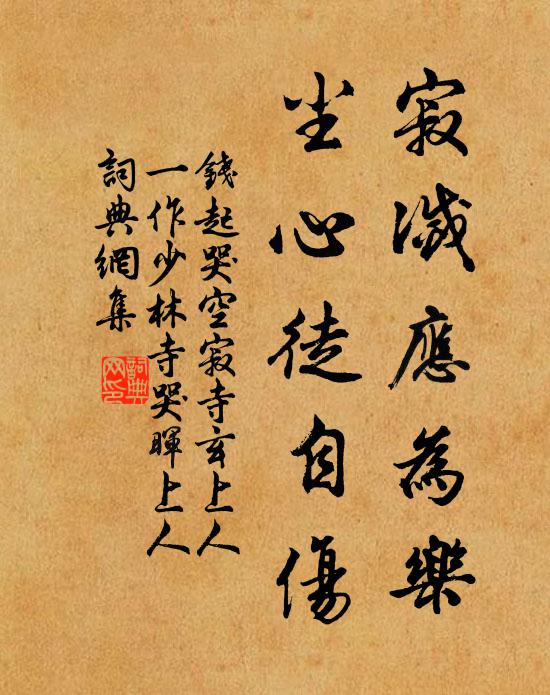 寂滅應為樂
尘心徒自傷
錢起哭空寂寺玄上人
一作少林寺哭暉上人
詞典網集
詞典网印